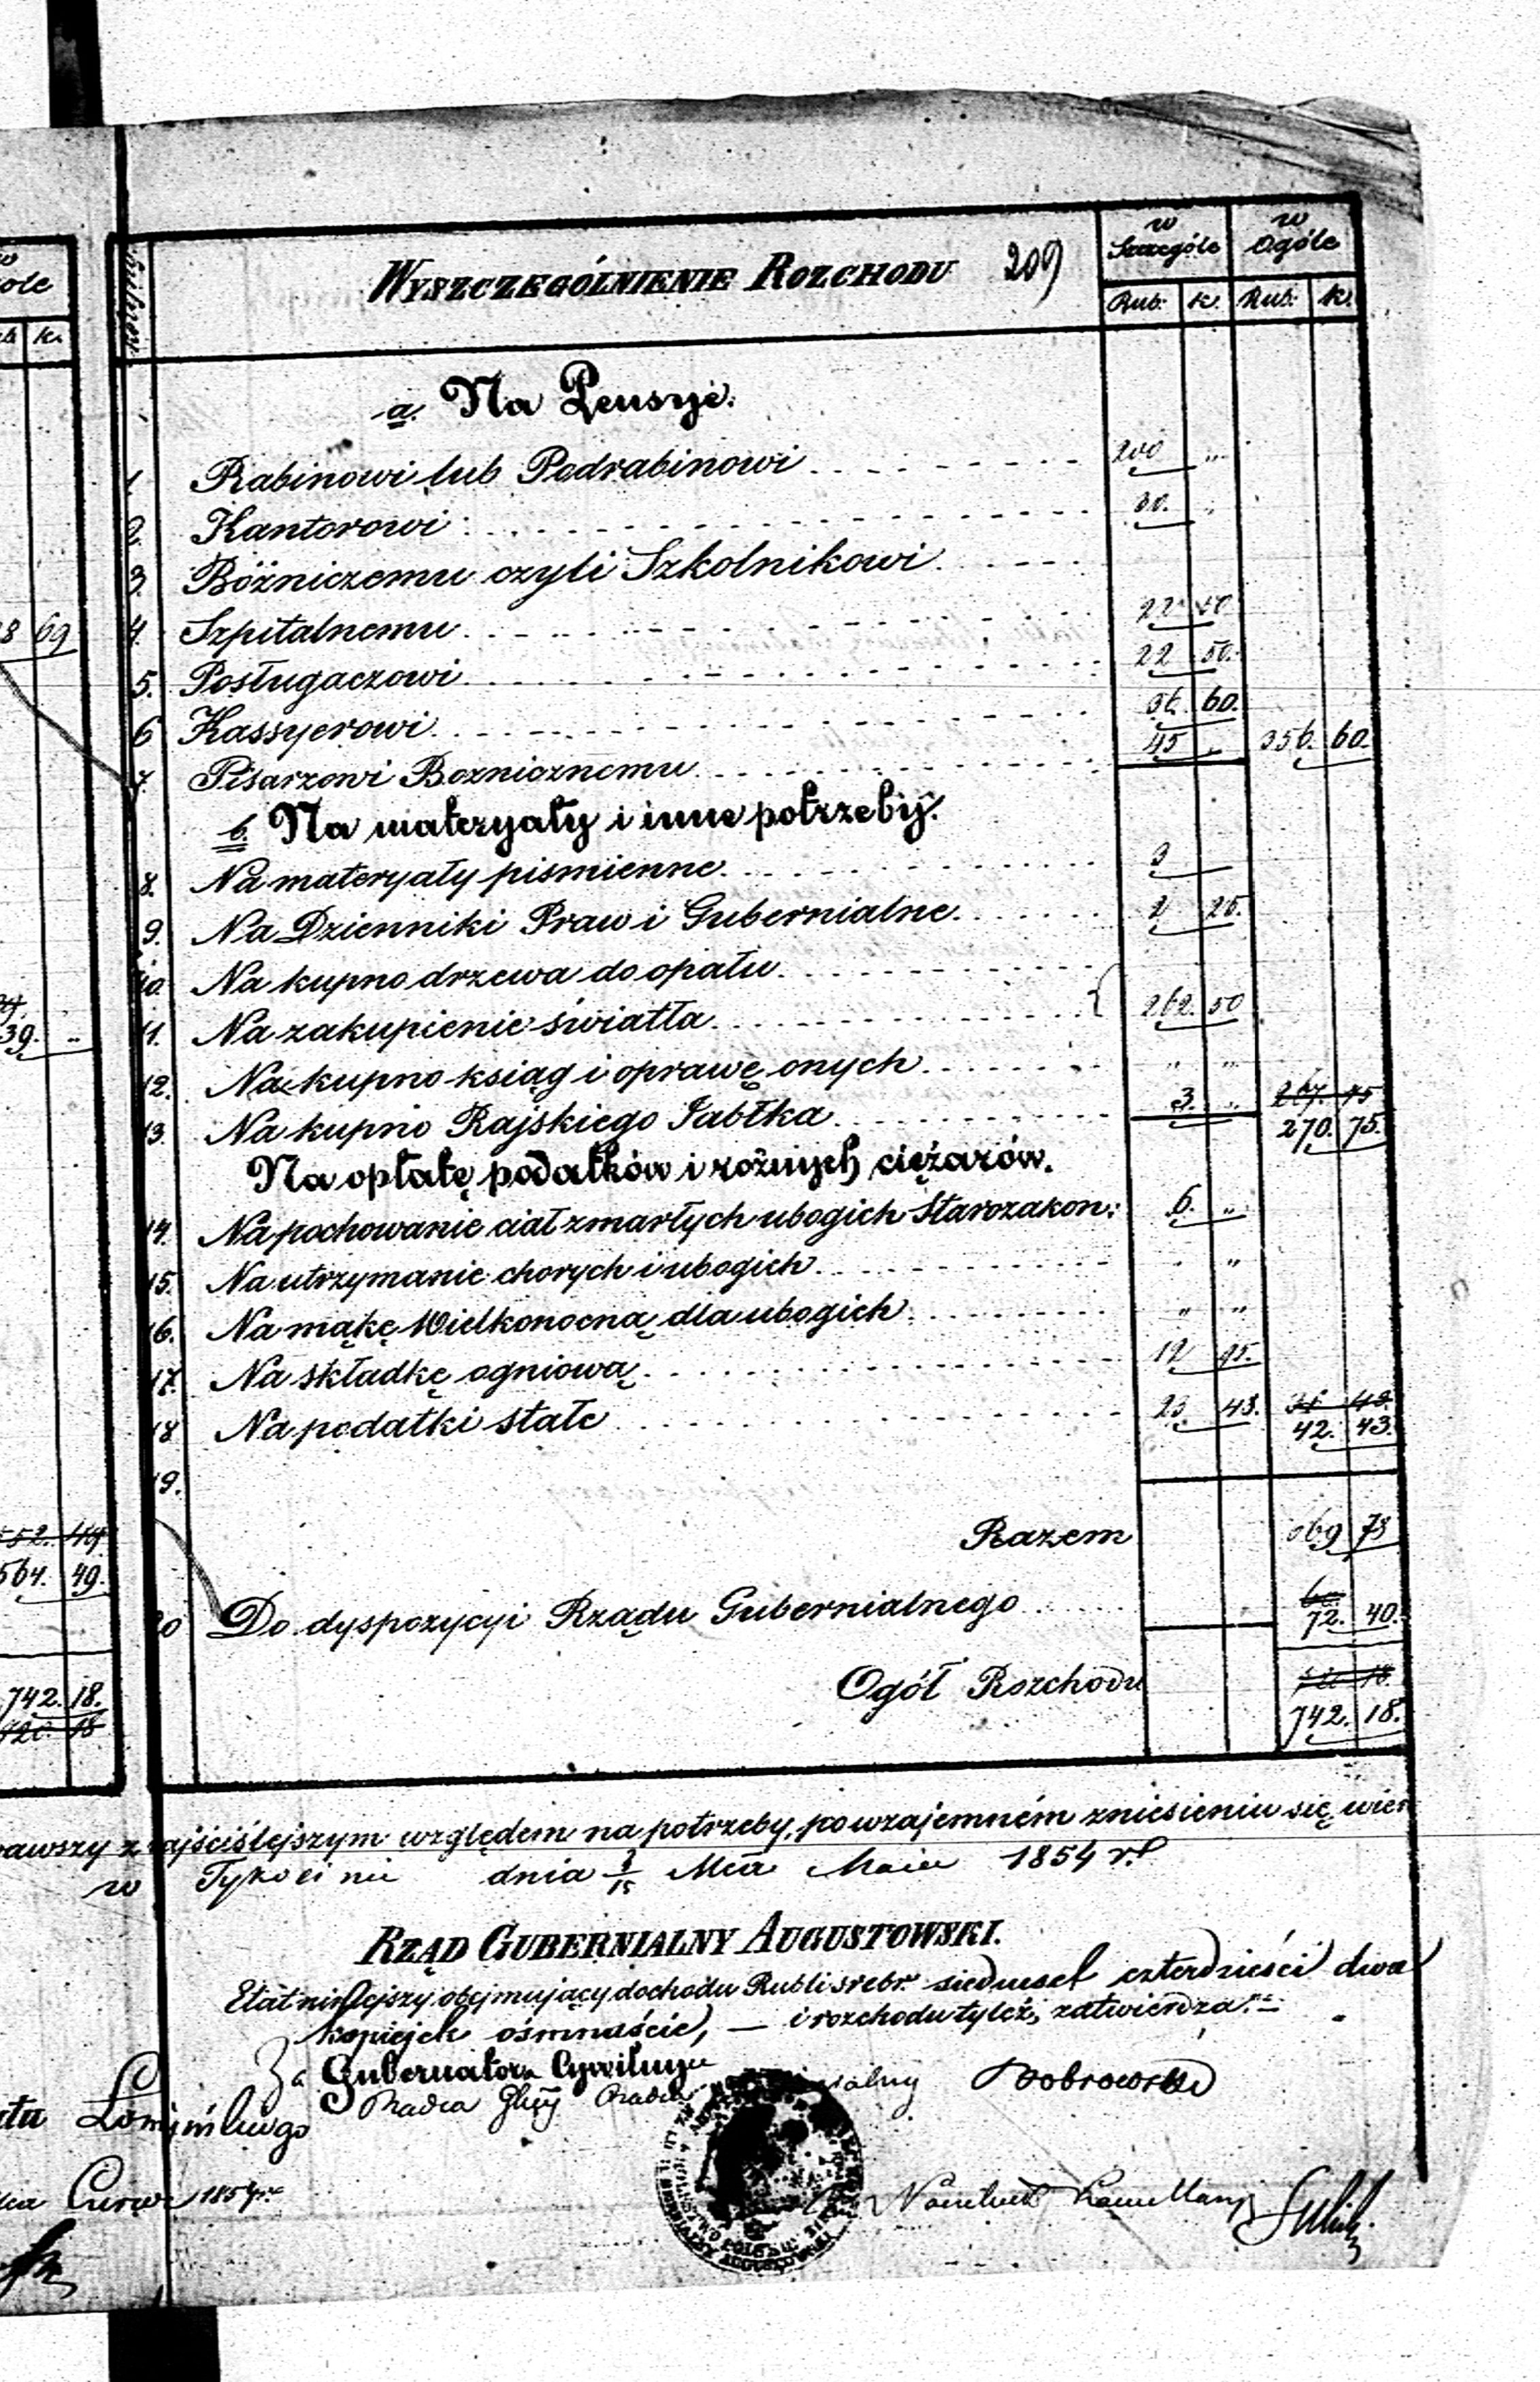 WYSZCZEGÓLNIENIE ROZCHODU 209
w Szczególe w Ogóle
Rub: k. Rub: k.
a. Na Pensyie.
1. Rabinowi lub Podrabinowi 200 „
2. Kantorowi 30. „
3. Bóźniczemu czyli Szkolnikowi
4. Szpitalnemu 22 50
5. Posługaczowi 22 50.
6 Kassyerowi 36. 60.
7. Pisarzowi Boznicznemu 45 „ 356. 60.
b. Na materyały i inne potrzeby.
8. Na materyały pismienne 3
9. Na Dzienniki Praw i Gubernialne 2 25.
10. Na kupno drzewa do opału
11. Na zakupienie światła 262. 50
12. Na kupno ksiąg i oprawę onych „ „
13. Na kupno Rajskiego Jabłka 3. „ 267. 75
270. 75.
Na opłatę podatków i rożnych ciężarów.
14. Na pochowanie ciał zmarłych ubogich Starozakon: 6. „
15. Na utrzymanie chorych i ubogich „
16. Na mąkę Wielkonocną dla ubogich „ „
17. Na składkę ogniową 12 95.
18 Na podatki stałe 23. 48. 43.
42. 43.
19.
Razem 669 78
20 Do dyspozycyi Rządu Gubernialnego
72. 40.
Ogół Rozchodu 18.
742. 18.
8 69
39. „
552. 49
564. 49.
742. 18.
720. 18
najściślejszym względem na potrzeby, po wzajemném zniesieniu się, wier
w Tykocinie dnia 3/15 Mca Maia 1854 r.
RZĄD GUBERNIALNY AUGUSTOWSKI.
Etat niniejszy obejmujący dochodu Rubli srebr. siedmset czterdzieści dwa
kopiejek ośmnaście, — i rozchodu tyleż, zatwierdza.
Za Gubernatora Cywilnego
Radca Dobrowolski
Łomżyńskiego
Naczelnik Kancellaryi
Czerwca 1854 r.